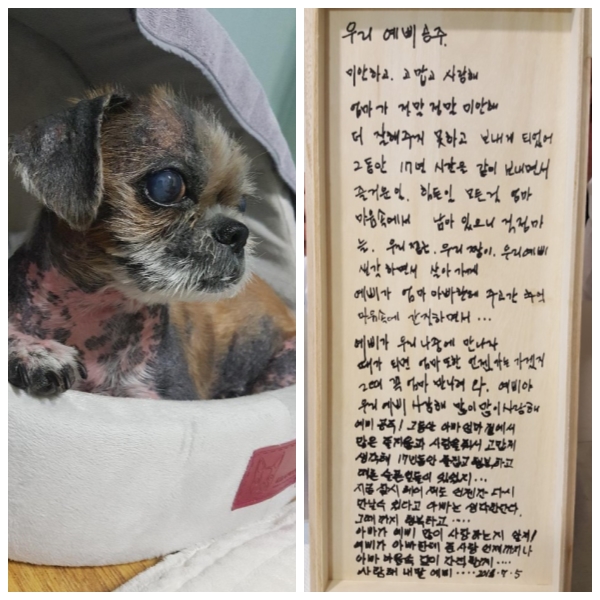 우리 예삐 공주.
미안하고. 고맙고 사랑해
엄마가 정말 정말 미안해
더 잘해주지 못하고 보내게 되었어
그동안 17년 시간을 같이 보내면서
즐거운일. 힘든일 모든걸 엄마
마음속에서 남아 있으니 걱정마
는. 우리 우리 딸이. 우리예삐
생각하면서 살아가께
예삐가 엄마 아빠한테 주고간 추억
마음속에 간직하면서 ...
예삐가 우리 나중에 만나자
때가 되면 엄마 또한 언젠가는 가겠지
그때 꼭 엄마 만나러 와. 예삐야
우리 예삐 사랑해 많이많이 사랑해
예삐 공주! 그동안 아빠 엄마 곁에서
많은 즐거움과 사랑을 줘서 고맙게
생각해 17년동안 즐겁고 행복하고
때론 슬픈일들이 있었지...
지금 잠시 헤어져도 언젠간 다시
만날수 있다고 아빠는 생각한단다.
그때까지 행복하고 ....
아빠가 예삐 많이 사랑하는지 알지!
예삐가 아빠한테 준사랑 언제까지나
아빠 마음속 깊이 간직할게 ....
사랑해 내딸 예삐 ....